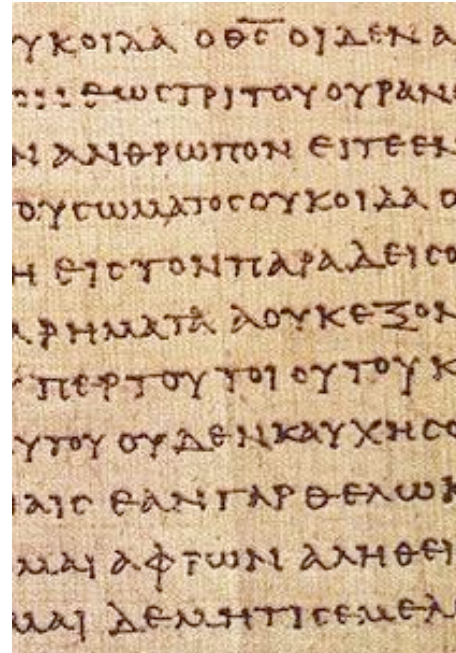 ΥΚΟΙΔΑ Ο Θ̅Ϲ̅ ΟΙΔΕΝ Α
ΕΩϹ ΤΡΙΤΟΥ ΟΥΡΑΝ
Ν ΑΝΘΡΩΠΟΝ ΕΙΤΕ ΕΝ
ΟΥ ϹΩΜΑΤΟϹ ΟΥΚ ΟΙΔΑ Ο
Η ΕΙϹ ΤΟΝ ΠΑΡΑΔΕΙϹΟ
ΑΡΗΜΑΤΑ Α ΟΥΚ ΕΞΟΝ
ΥΠΕΡ ΤΟΥ ΤΟΙΟΥΤΟΥ Κ
ΥΤΟΥ ΟΥΔΕΝ ΚΑΥΧΗϹΟ
ΑΙϹ ΕΑΝ ΓΑΡ ΘΕΛΩ Κ
ΜΑΙ ΑΦΡΩΝ ΑΛΗΘΕΙ
ΜΑΙ ΔΕ ΜΗ ΤΙϹ ΕΜΕ Λ